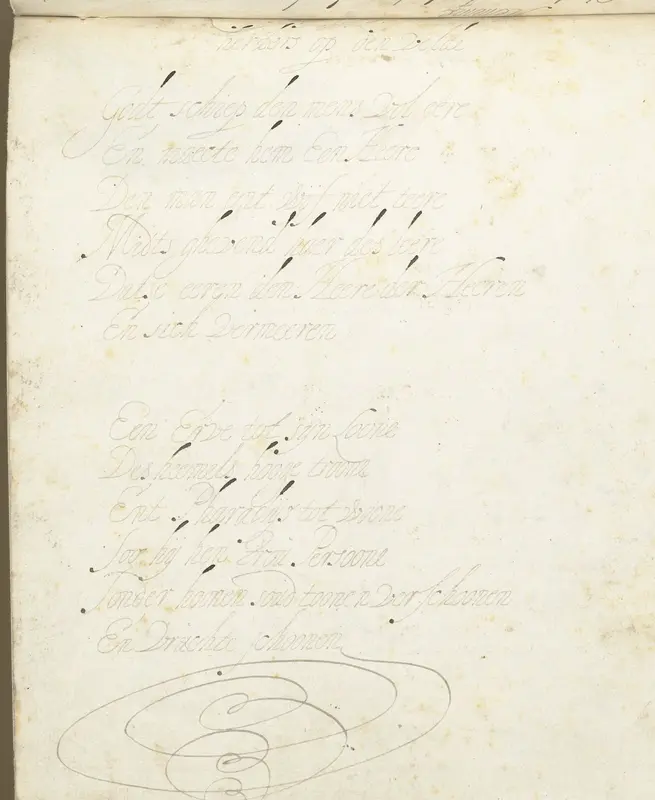 op den
Godt schiep den mens vol eere
En maecte hem Een Heere
Den man ent wijf niet teere
Midts ghevend haer des leere
Datse eeren den Heere der Heeren
En sich vermeeren
Een Erve tot sijn Loone
Des hemels hooge troone
Ent Paradijs tot woone
Soo hij hen Persoone
Sonder hoonen toonen verschoonen
En schoonen